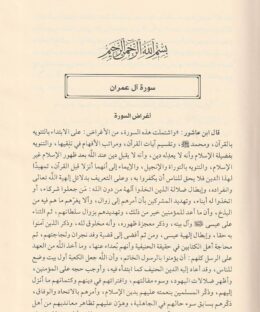 بسم الله الرحمن الرحيم
سورة آل عمران
أغراض السورة
قال ابن عاشور: «واشتملت هذه السورة، من الأغراض: على الابتداء بالتنويه
بالقرآن، ومحمد ﷺ، وتقسيم آيات القرآن، ومراتب الأفهام في تلقيها، والتنويه
بفضيلة الإسلام وأنه لا يعدله دين، وأنه لا يقبل دين عند الله بعد ظهور الإسلام غير
الإسلام، والتنويه بالتوراة والإنجيل، والإيماء إلى أنهما أنزلا قبل القرآن، تمهيدًا
لهذا الدين فلا يحق للناس أن يكفروا به، وعلى التعريف بدلائل إلهية الله تعالى
وانفراده، وإبطال ضلالة الذين اتخذوا آلهة من دون الله: من جعلوا شركاء، أو
اتخذوا أبناء، وتهديد المشركين بأن أمرهم إلى زوال، وألا يغرهم ما هم فيه من
البذخ، وأن ما أعد للمؤمنين خير من ذلك، وتهديدهم بزوال سلطانهم، ثم الثناء
على عيسى وآل بيته، وذكر معجزة ظهوره، وأنه مخلوق لله، وذكر الذين آمنوا
به حقا، وإبطال إلهية عيسى، ومن ثم أفضى إلى قضية وفد نجران ولجاجتهم، ثم
محاجة أهل الكتابين في حقيقة الحنيفية وأنهم بعداء عنها، وما أخذ الله من العهد
على الرسل كلهم: أن يؤمنوا بالرسول الخاتم، وأن الله جعل الكعبة أول بيت وضع
للناس، وقد أعاد إليه الدين الحنيف كما ابتدأه فيه، وأوجب حجه على المؤمنين،
وأظهر ضلالات اليهود، وسوء مقالتهم، وافترائهم في دينهم وكتمانهم ما أنزل
إليهم، وذكر المسلمين بنعمته عليهم بدين الإسلام، وأمرهم بالاتحاد والوفاق،
وذكرهم بسابق سوء حالهم في الجاهلية، وهون عليهم تظاهر معانديهم من أهل